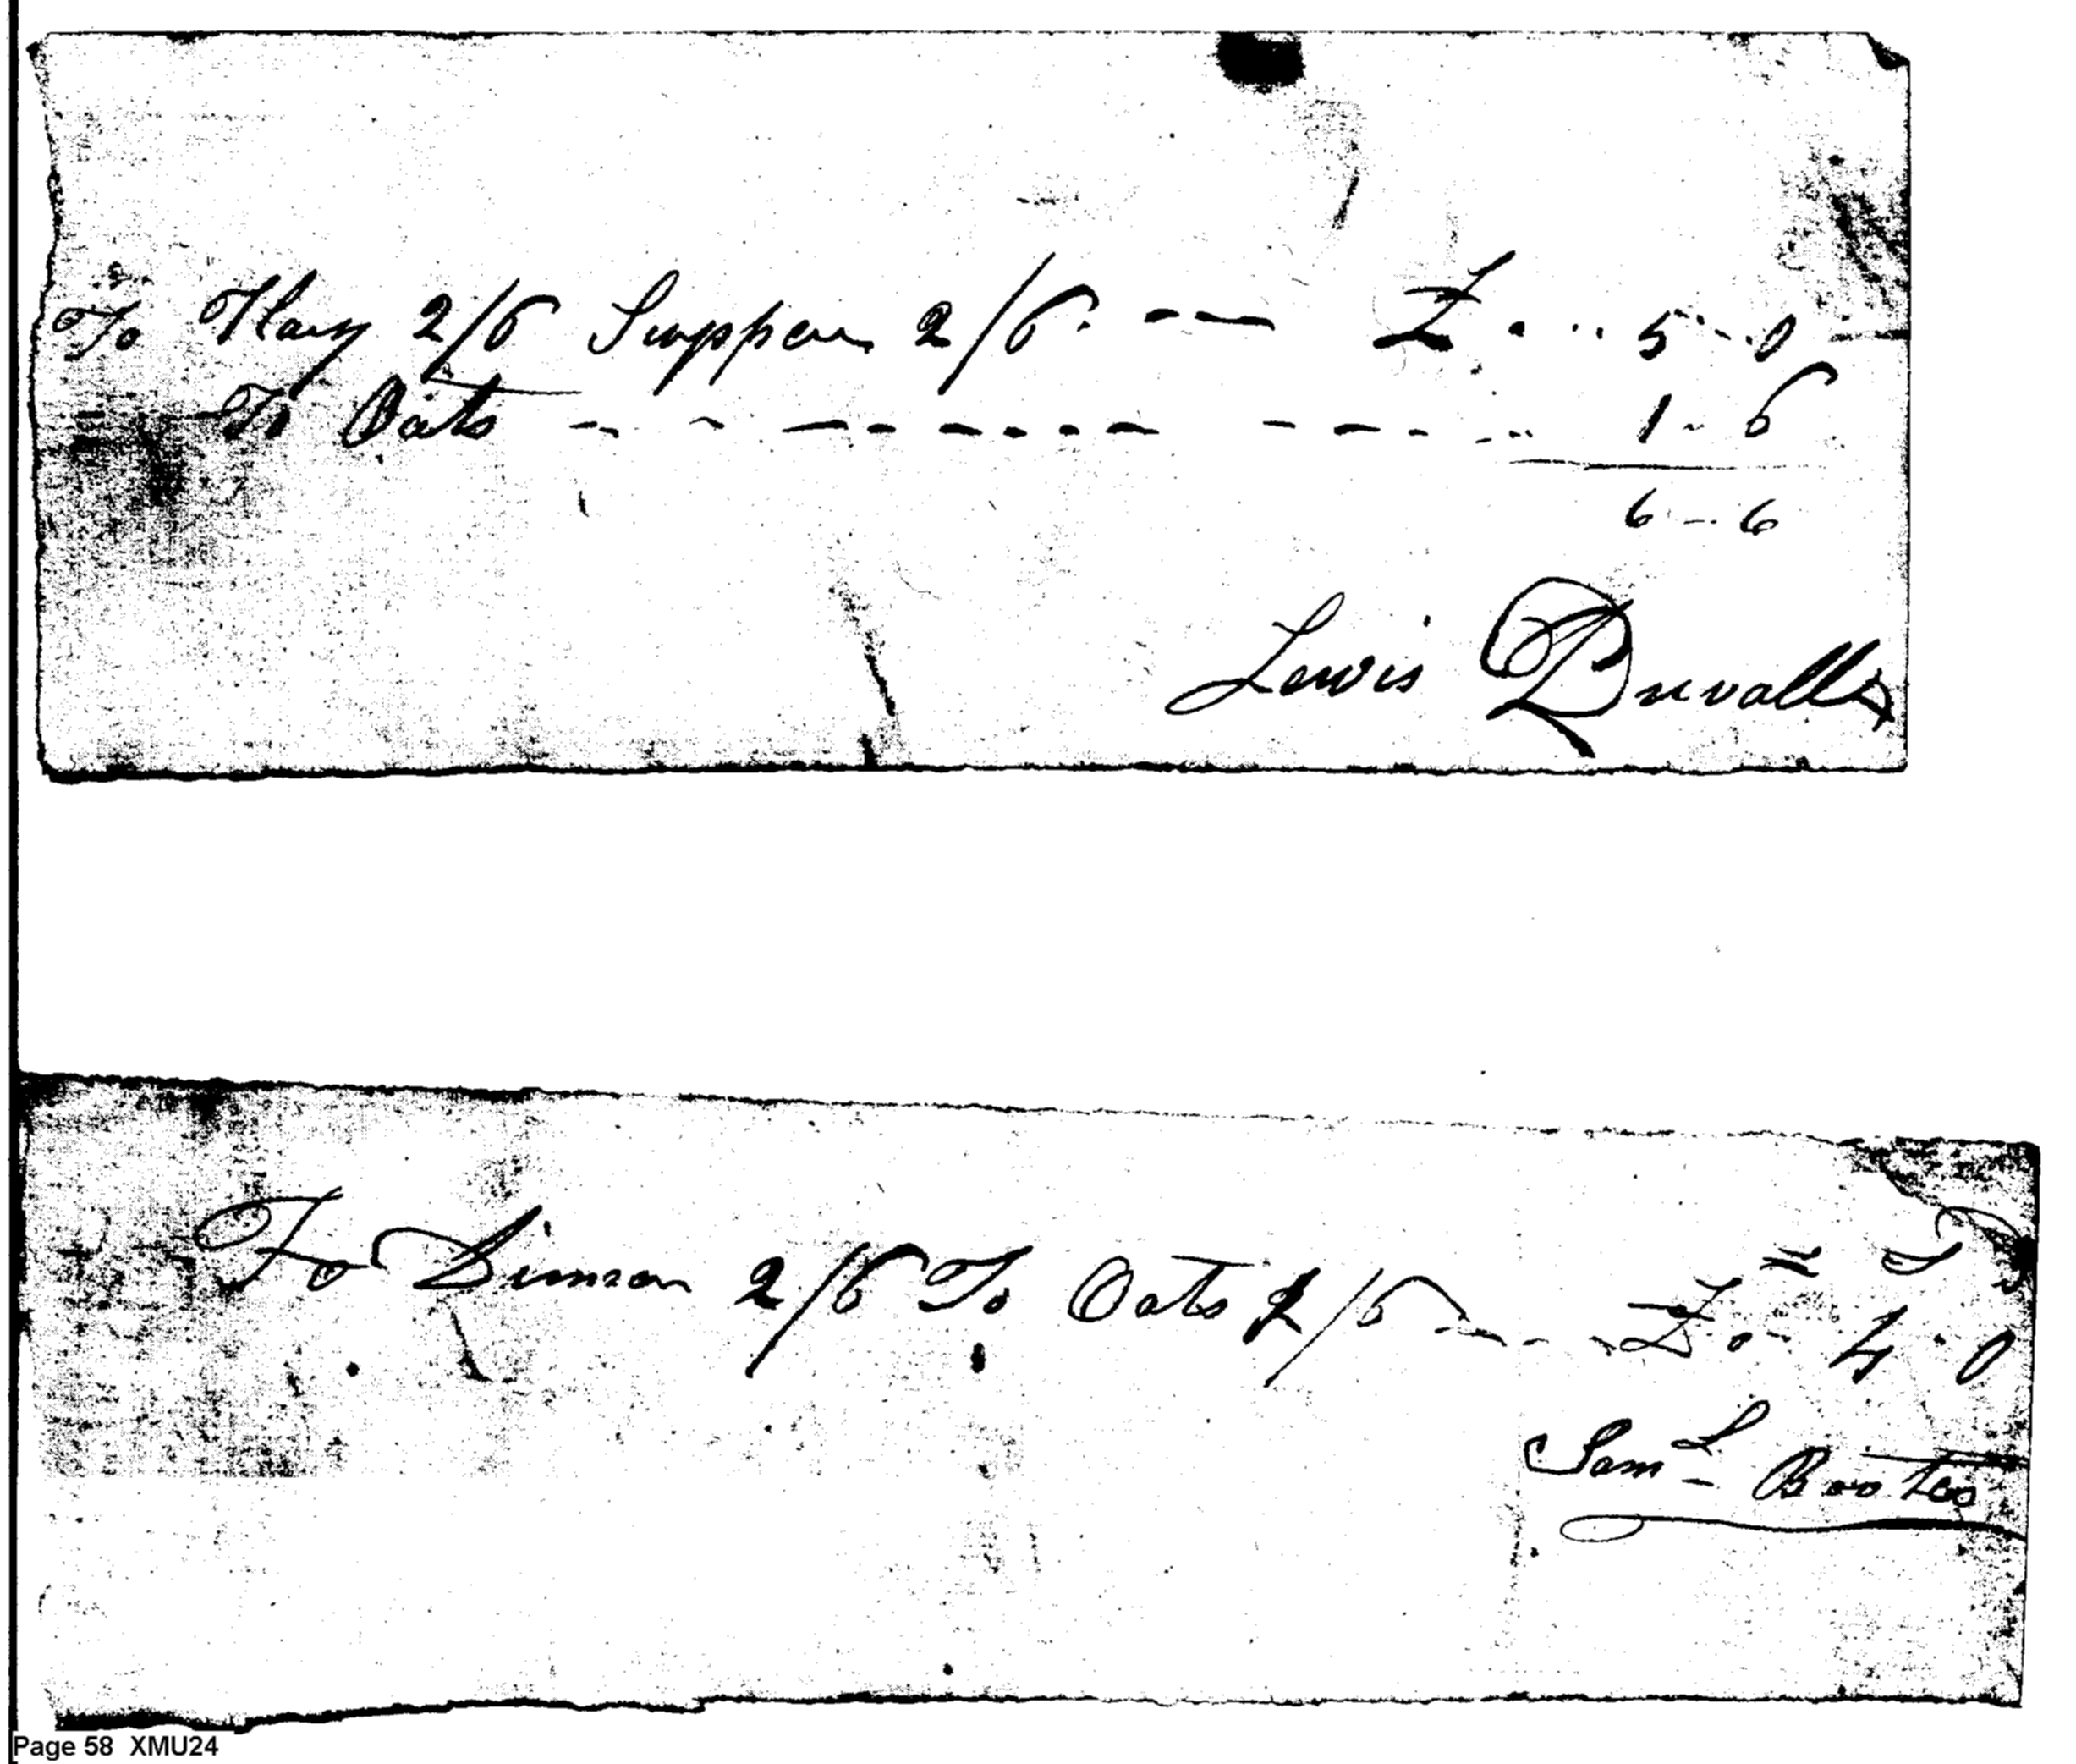 To Hay 2/6 Supper 2/6. --- £ . .. 5 - 0
To Oats - - - - - - - - - - - - 1 - 6
6 - 6
Lewis Duvall
To Dinner 2/6 To Oats 1/6 --- £ o - 4 . 0
Saml Bootes
Page 58 XMU24